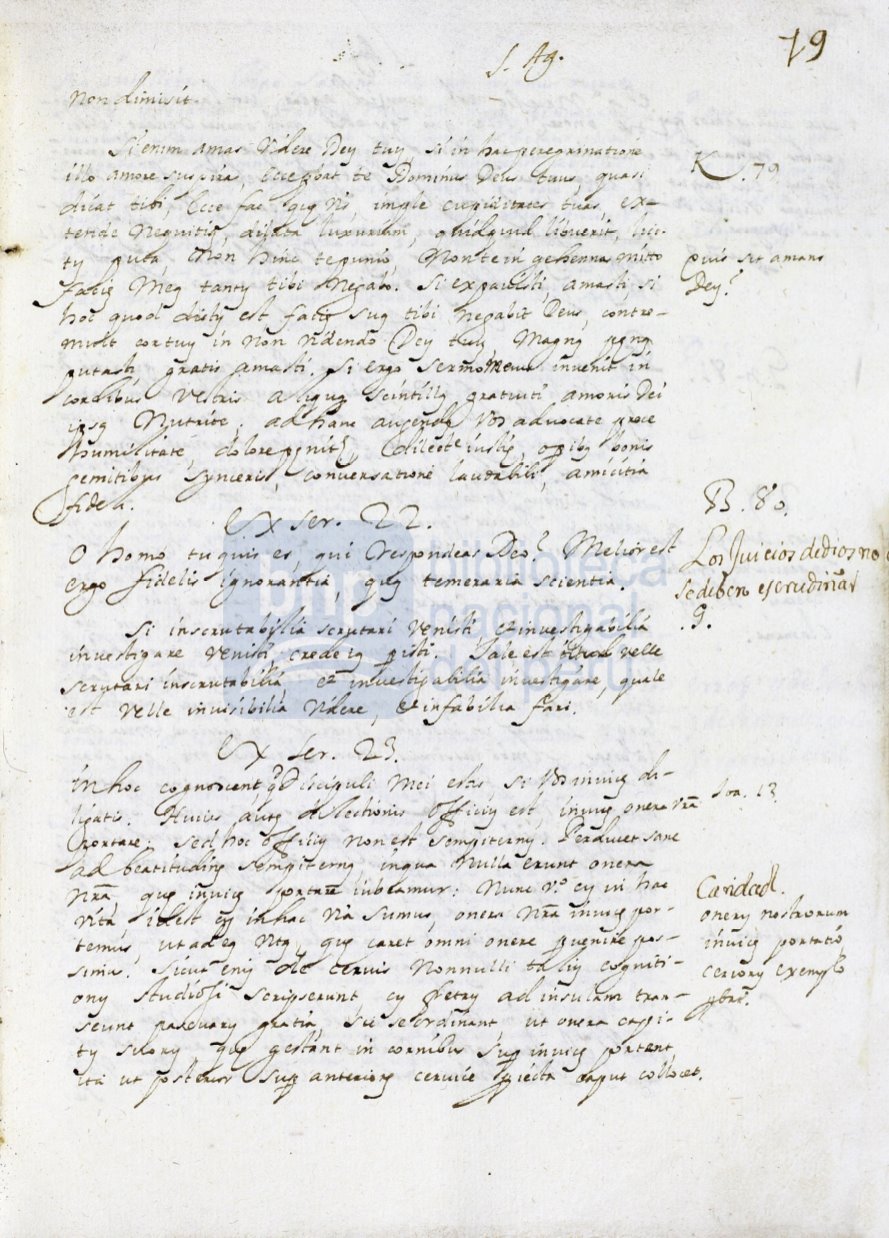 S. Ag.
79
non dimisit.
Si enim amas videre Dey tuy si in hac peregrinatione
illo amore suspiras, ecce pbat te Dominus Deus tuus, quasi
dicat tibi, Ecce fac quq vis, imple cupiditates tuas, ex-
tende nequitiā, dilata luxuriam, quidquid libuerit, lici-
ty puta, Non hinc te punio, Non te in gehenna mitto
facie mey tanty tibi negabo. Si expavisti, amasti, si
hoc quod dicty est facie sua tibi negabit Deus, contre-
muit cor tuy in non videndo Dey tuy, Magng pgng
putasti, gratis amasti. Si ergo sermo meus invenit in
cordibus vestris aliqug scintillg gratuiti amoris Dei
ipsg nutrite: ad hanc augendg vos advocate prece
humilitate, dolore pgnitę, dilectē iustię, opiby bonis
gemitibus synceris, conversatione laudabili, amicitia
fideli.
K. 79
Quis sit amans
Dey?
Ex ser. 22.
O homo tu quis es, qui respondeas Deo? Melior est
ergo fidelis ignorantia, quq temeraria scientia.
B. 80.
Los Juicios de dios no
se deben escrudiñar
.9.
Si inscrutabilia scrutari venisti, et investigabilia
investigare venisti, crede ia pisti. Tale est velle
scrutari inscrutabilia, et investigabilia investigare quale
est velle invisibilia videre, et infabilia fari.
Ex ser. 23.
In hoc cognoscent q Discipuli mei estis, si vos invicę di-
ligatis. Huius autę dilectionis officiy est, invicę onera nrā
portare: sed hoc officiy non est sempiterny. Perducet sane
ad beatitudinę sempiterng, in qua nulla erunt onera
nrā, quę invicę portare iubeamur: Nunc vo. cy in hac
vita, idest cy in hac via sumus, onera nrā invicę por-
temus, ut ad eg vitg, quę caret omni onere pvenire pos-
simus. Sicut enim de cervis nonnulli taliy cogniti-
ony studiosi scripserunt cy fretry ad insulam tran-
seunt pascuary gratia, sic se ordinant, ut onera capi-
ty suory quę gestant in cornibus supę invicę portent,
ita ut posterior supę anteriorę cervice piecta caput collocet.
Joa. 13
Caridad.
onery nostrorum
invicę portatio,
cervory exemplo
pbtr.
biblioteca
nacional
del perú
bnp